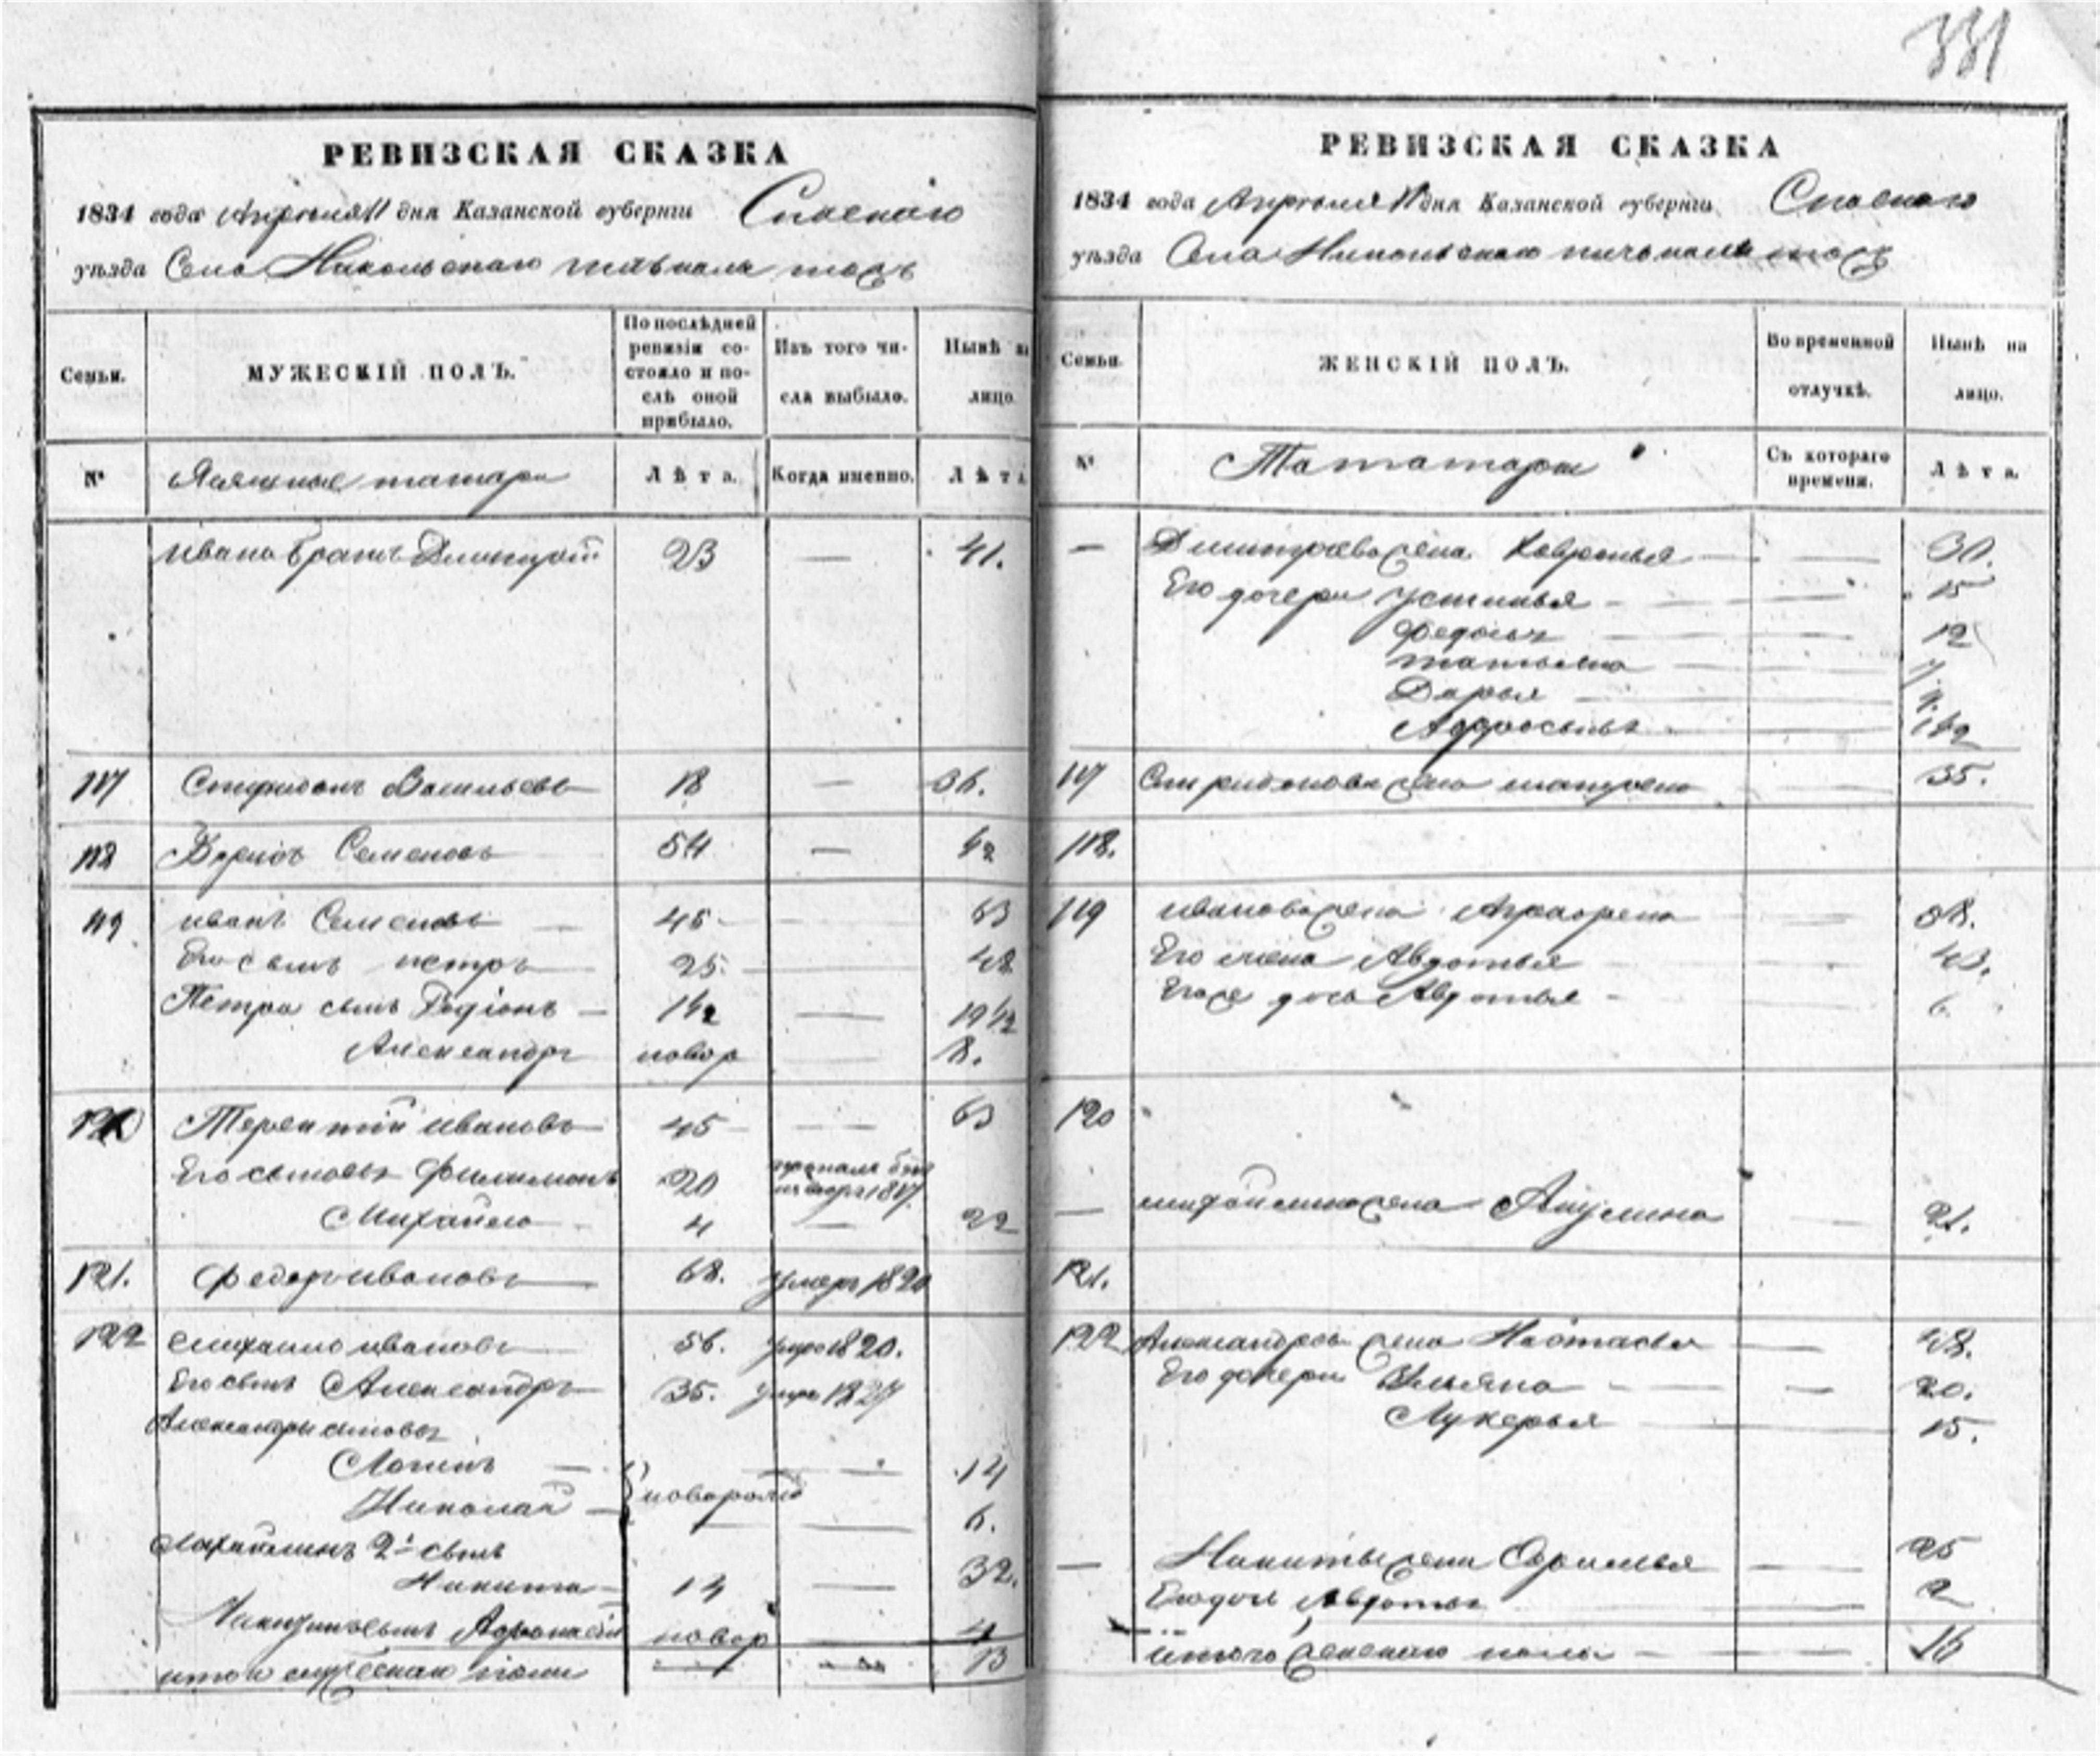 331
РЕВИЗСКАЯ СКАЗКА
1834 года Апреля 11 дня Казанской губерніи Спаскаго
уѣзда Села Никольскаго тожъ
Семьи.
МУЖЕСКІЙ ПОЛЪ.
По послѣдней ревизіи состояло и послѣ оной прибыло.
Изъ того числа выбыло.
Нынѣ на лицо.
№
Ясашные татары
Лѣта.
Когда именно.
Лѣта
Ивана братъ Дмитрій 23 — 41.
117 Спиридонъ Васильевъ 18 — 36.
Семеновъ 54 —
119 Иванъ Семеновъ 45 — 63
Его сынъ Петръ 25 —
Петра сынъ Родіонъ — 1 1/2 — 19 1/2
Александръ новор — 8.
Терентій Ивановъ 45 — 63
Его сыновья Филимонъ 20
Михайло 4 — 22
121. Федоръ Ивановъ 68. умеръ 1820
122 Михайло Ивановъ 56. умре 1820.
Его сынъ Александръ 35. умре 1827
Александры сыновья
Логинъ — — 14
новорож
Николай — — 6.
Михайлинъ 2й сынъ
Никита 14 — 32.
Никитинъ сынъ Афонасій новор — 4
итого мужескаго пола — — 13
РЕВИЗСКАЯ СКАЗКА
1834 года Апреля 11 дня Казанской губерніи Спаскаго
уѣзда Села Никольскаго тожъ
Семьи.
ЖЕНСКІЙ ПОЛЪ.
Во временной отлучкѣ.
Нынѣ на лицо.
№
Съ котораго времени.
Лѣта.
— Дмитріева жена Хавронья — 30.
Его дочери Устинья — 15
Федосья — 12
Татьяна —
Дарья —
117 Спиридонова жена Матрена — 35.
118.
119 Иванова жена Аграфена — 58.
Авдотья — 43.
Его же дочь Авдотья — 6
120
— Михайлина жена Акулина — 21.
121.
122 Александрова жена Настасья — 48.
Его дочери Ульяна — 20.
Лукерья — 15.
— Никиты жена — 25
Его дочь Авдотья — 2
итого женскаго пола — 16